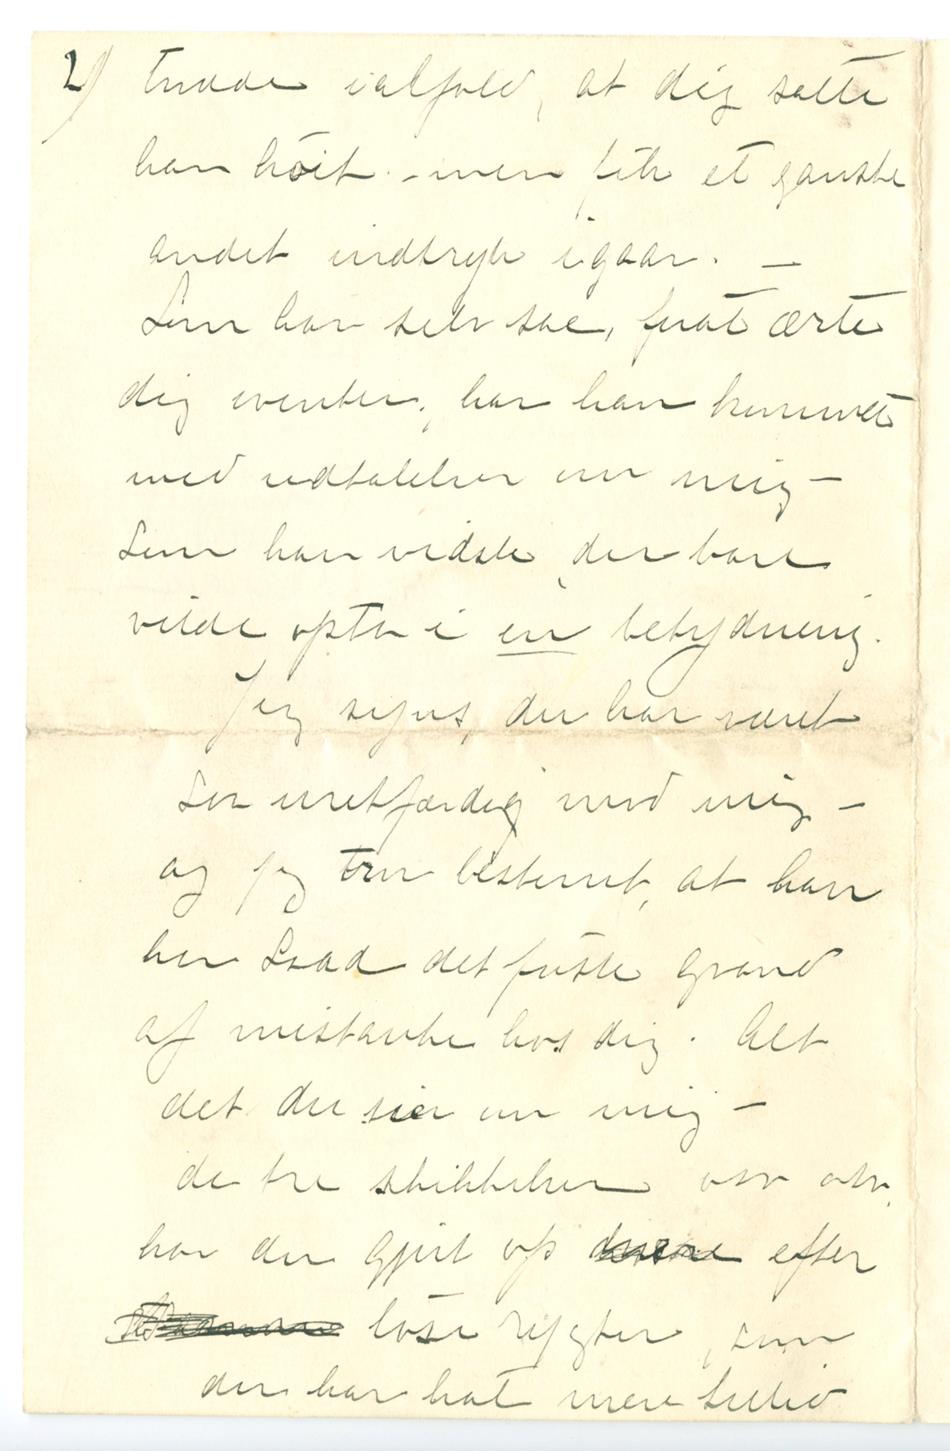 2) trode ialfald, at dig satte
han høit – men fik et ganske
andet indtryk igaar. –
Som han selv sae, for at ærte
dig eventer, har han kommet
med udtalelser om mig –
Som han vidste, du bare
vilde opta i en betydning.
Jeg synes, du har været
saa uretfærdig mod mig –
og jeg tror bestemt, at han
her saad det første grand
af mistanke hos dig. Alt
det du sier om mig –
de tre skikkelser osv osv.
har du gjort op efter
løse rygter, som
du har hat mere tillid